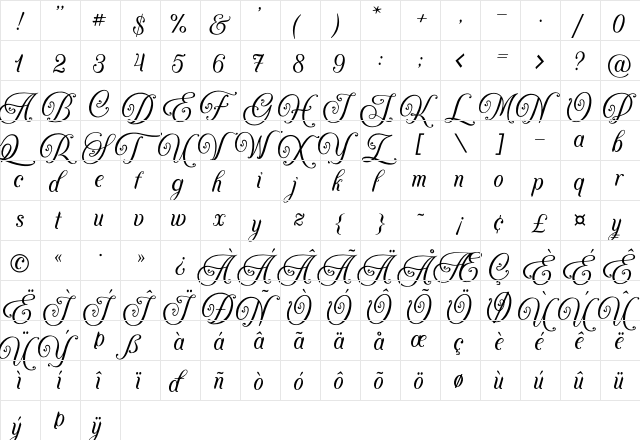 ! " # $ % & ' ( ) * + , – . / 0
1 2 3 4 5 6 7 8 9 : ; < = > ? @
A B C D E F G H I J K L M N O P
Q R S T U V W X Y Z [ \ ] – a b
c d e f g h i j k f m n o p q r
s t u v w x y z { } ~ ¡ ¢ £ ¤ ¥
© « · » ¿ À Á Â Ã Ä Å Æ Ç È É Ê
Ë Ì Í Î Ï Ð Ñ Ò Ó Ô Õ Ö Ø Ù Ú Û
Ü Ý þ ß à á â ã ä å æ ç è é ê ë
ì í î ï đ ñ ò ó ô õ ö ø ù ú û ü
ý þ ÿ